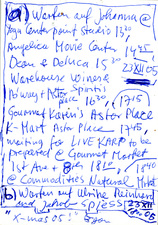 a) Warten auf Johanna @
Yoga Centerpoint Studio 13³⁰
Angelica Movie Center 14⁴⁵
Dean & Deluca 15³⁰ 23XII05
Warehouse Wines &
B'way + Astor Spirits
place 16³⁰ 17¹⁵
Gourmet Karin's Astor Place
K-Mart Astor Place 17⁴⁵
waiting for LIVE KARP to be
prepared @ Gourmet Market
1st Ave + 18¹⁵ 18⁴⁰
@ Commodities Natural Market
b) Warten auf Ulrike Reinhard
and John 23XII
"X-mas 05"